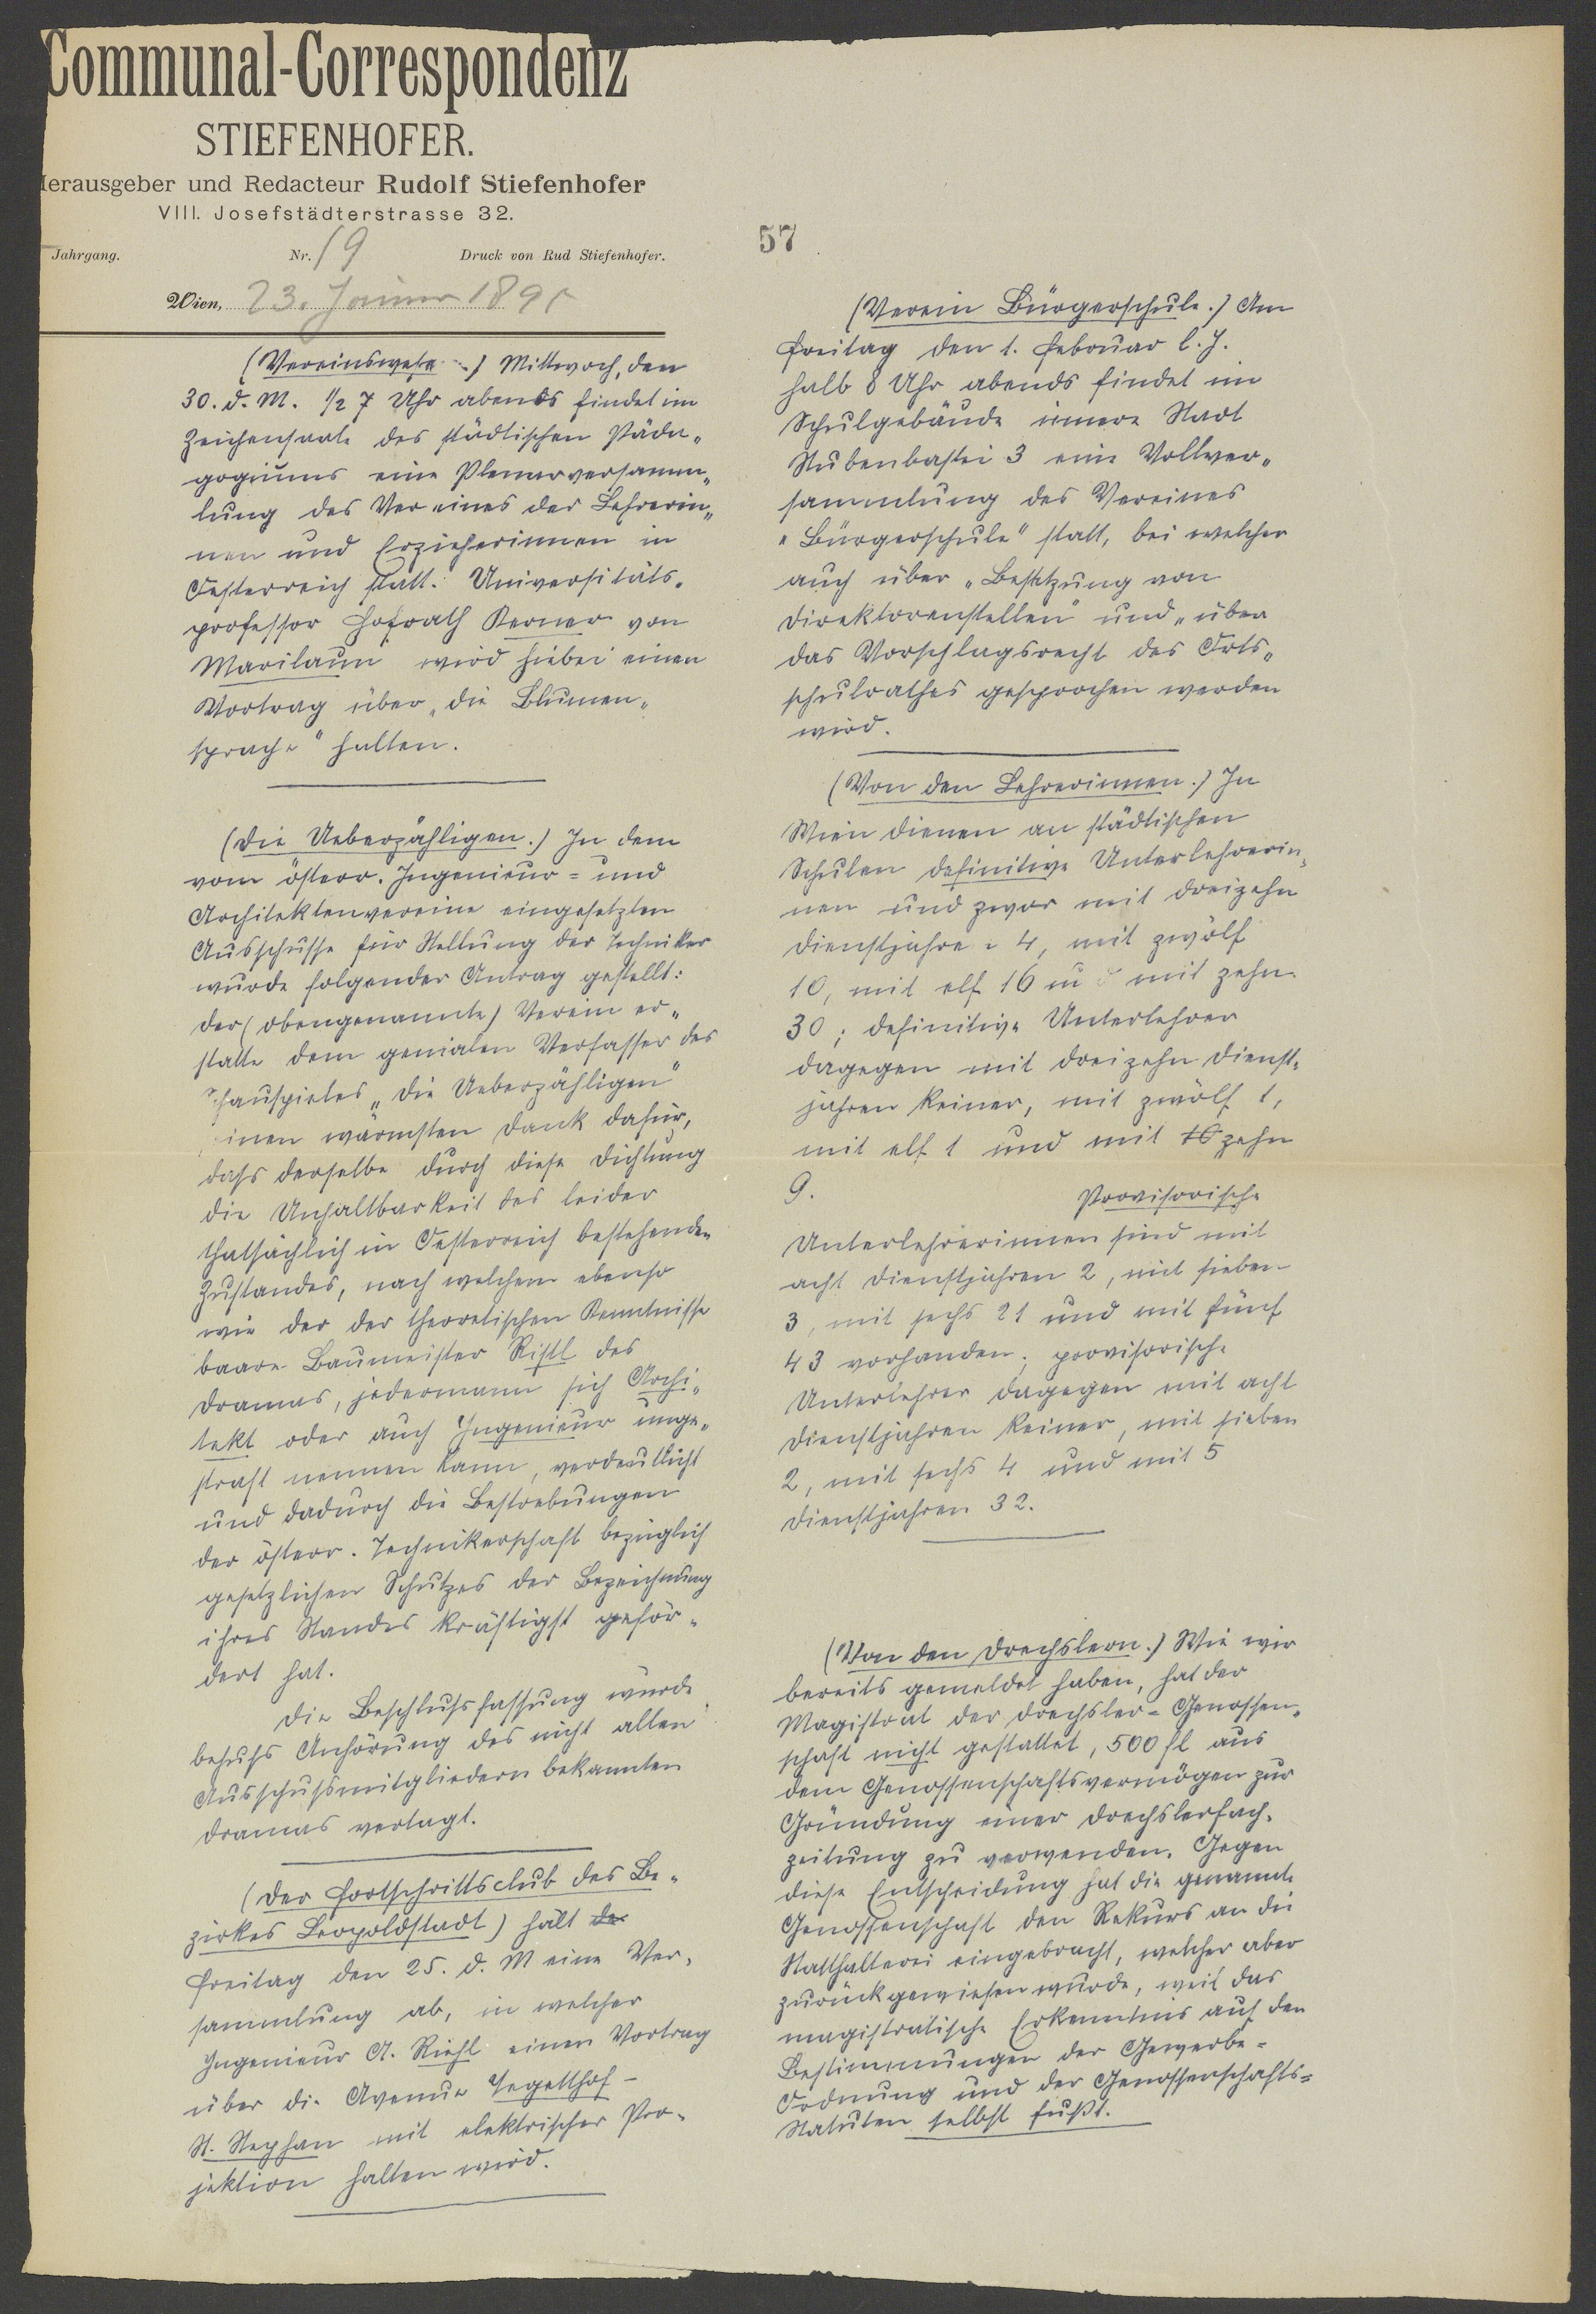 Communal-Correspondenz
STIEFENHOFER.
Herausgeber und Redacteur Rudolf Stiefenhofer
VIII. Josefstädterstrasse 32.
Jahrgang. Nr. 19 Druck von Rud Stiefenhofer.
Wien, 23. Jänner 1895
(Vereinswese ) Mittwoch, den
30. d. M. 1/2 7 Uhr abends findet im
Zeichensaale des städtischen Päda„
gogiums eine Plenarversamm„
lung des Vereines der Lehrerin„
nen und Erzieherinnen in
Oesterreich statt. Universitäts„
professor Hofrath Kerner von
Marilaun wird hiebei einen
Vortrag über „die Blumen„
sprache" halten.
(Die Ueberzähligen.) In dem
vom österr. Ingenieur= und
Architektenvereine eingesetzten
Ausschusse für Stellung der Techniker
wurde folgender Antrag gestellt:
Der (obengenannte) Verein er„
statte dem genialen Verfasser des
Schauspieles „Die Ueberzähligen"
inen wärmsten Dank dafür,
dass derselbe durch diese Dichtung
die Unhaltbarkeit des leider
thatsächlich in Oesterreich bestehenden
Zustandes, nach welchem ebenso
wie der der theoretischen Kenntnisse
baare Baumeister Ristl des
Dramas, jedermann sich Archi„
tekt oder auch Ingenieur unge„
straft nennen kann, verdeutlicht
und dadurch die Bestrebungen
der österr. Technikerschaft bezüglich
gesetzlichen Schutzes der Bezeichnung
ihres Standes kräftigst geför„
dert hat.
Die Beschlussfassung wurde
behufs Anhörung des nicht allen
Ausschussmitgliedern bekannten
Dramas vertagt.
(Der Fortschrittsclub des Be„
zirkes Leopoldstadt) hält de
Freitag den 25. d. M eine Ver„
sammlung ab, in welcher
Ingenieur A. Riehl einen Vortrag
über die Avenue Tegetthof –
St. Stephan mit elektrischer Pro„
jektion halten wird.
57
(Verein Bürgerschule.) Am
Freitag den 1. Februar l. J.
halb 8 Uhr abends findet im
Schulgebäude innere Stadt
Stubenbastei 3 eine Vollver„
sammlung des Vereines
„Bürgerschule" statt, bei welcher
auch über „Besetzung von
Direktorenstellen" und „über
das Vorschlagsrecht des Orts„
schulrathes gesprochen werden
wird.
(Von den Lehrerinnen.) In
Wien dienen an städtischen
Schulen definitive Unterlehrerin„
nen und zwar mit dreizehn
Dienstjahre n 4, mit zwölf
10, mit elf 16 u d mit zehn
30; definitive Unterlehrer
dagegen mit dreizehn Dienst„
jahren keiner, mit zwölf 1,
mit elf 1 und mit 10 zehn
9. Provisorische
Unterlehrerinnen sind mit
acht Dienstjahren 2, mit sieben
3, mit sechs 21 und mit fünf
43 vorhanden; provisorische
Unterlehrer dagegen mit acht
Dienstjahren keiner, mit sieben
2, mit sechs 4 und mit 5
Dienstjahren 32.
(Von den Drechslern.) Wie wir
bereits gemeldet haben, hat der
Magistrat der Drechsler=Genossen„
schaft nicht gestattet, 500 fl aus
dem Genossenschaftsvermögen zur
Gründung einer Drechslerfach„
zeitung zu verwenden. Gegen
diese Entscheidung hat die genannte
Genossenschaft den Rekurs an die
Statthalterei eingebracht, welcher aber
zurückgewiesen wurde, weil das
magistratische Erkenntnis auf den
Bestimmungen der Gewerbe=
Ordnung und der Genossenschafts=
Statuten selbst fußt.